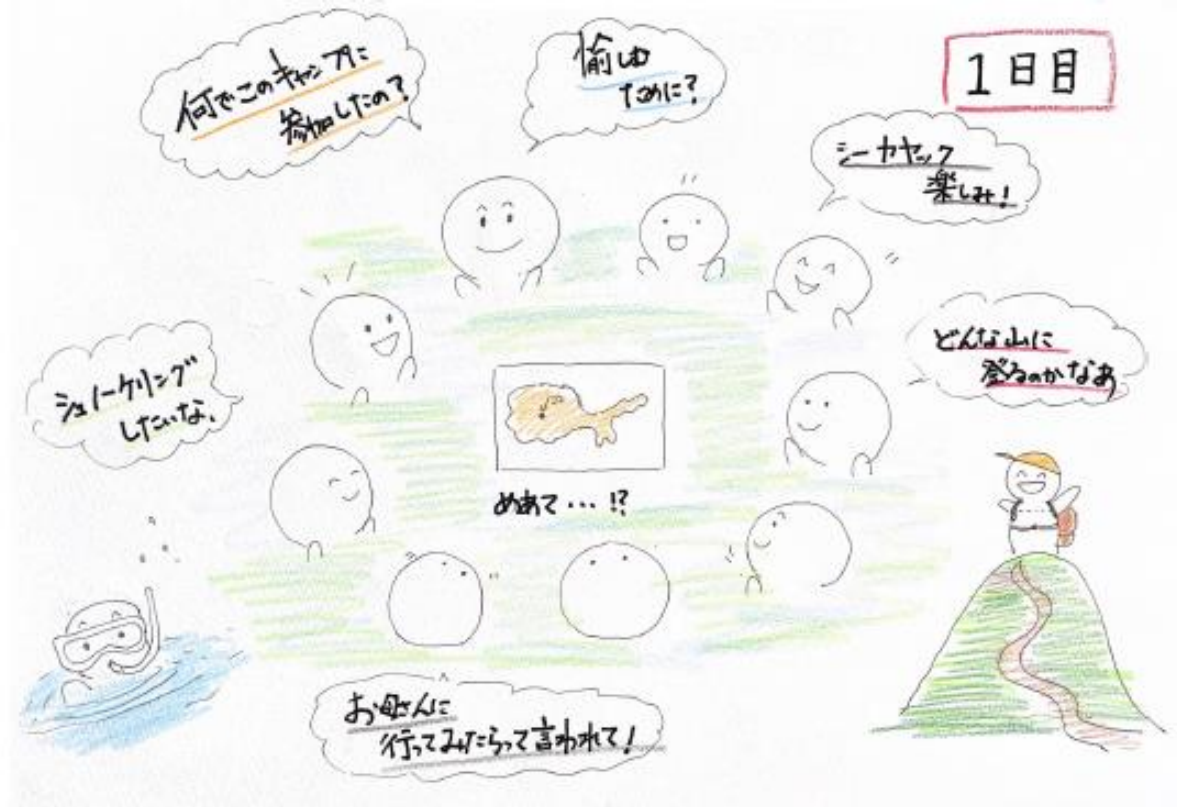 何でこのキャンプに
参加したの?
愉しむ
ために?
1日目
シーカヤック
楽しみ!
どんな山に
登るのかなあ
シュノーケリング
したいな、
めあて・・・!?
お母さんに
行ってみたらって言われて!